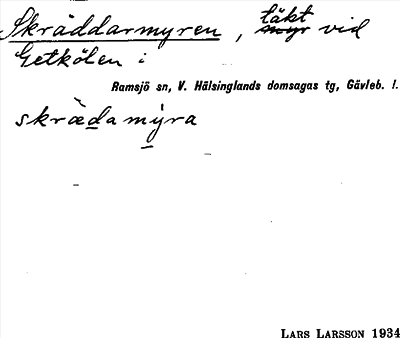 Skräddarmyren, täkt vid
Getkölen i
Ramsjö sn, V. Hälsinglands domsagas tg, Gävleb. l.
skrædamýra
LARS LARSSON 1934